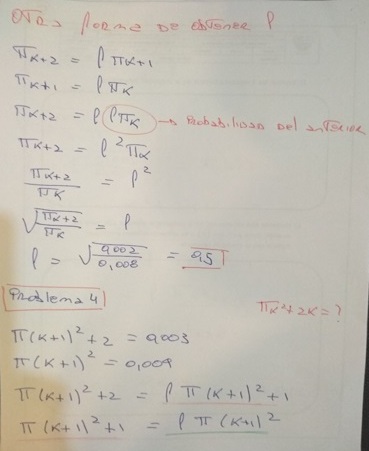 OTRA forma de obtener ρ
πK+2 = ρ πK+1
πK+1 = ρ πK
πK+2 = ρ ρπK → Probabilidad del anterior
πK+2 = ρ²πK
πK+2 / πK = ρ²
√(πK+2 / πK) = ρ
ρ = √(0,002 / 0,008) = 0,5
Problema 4
πK²+2K = ?
π(K+1)²+2 = 0,003
π(K+1)² = 0,009
π(K+1)²+2 = ρ π(K+1)²+1
π(K+1)²+1 = ρ π(K+1)²